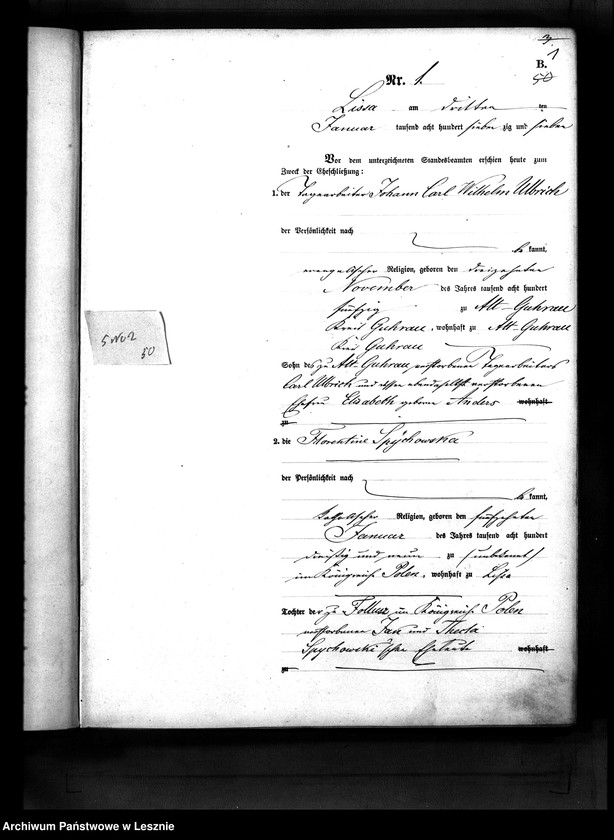 3.
1
B.
50
Nr. 1.
Lissa am dritten ten
Januar tausend acht hundert sieben zig und sieben
Vor dem unterzeichneten Standesbeamten erschien heute zum
Zweck der Eheschließung:
1. der Tagearbeiter Johann Carl Wilhelm Ulbrich
der Persönlichkeit nach
be kannt,
evangelischer Religion, geboren den dreizehnten
November des Jahres tausend acht hundert
fünfzig zu Alt-Guhrau
Kreis Guhrau, wohnhaft zu Alt-Guhrau
Kreis Guhrau
Sohn des zu Alt Guhrau verstorbenen Tagearbeiters
Carl Ulbrich und dessen ebendaselbst verstorbenen
Ehefrau Elisabeth geborne Anders wohnhaft
zu
2. die Florentine Spychowska
der Persönlichkeit nach
be kannt,
katholischer Religion, geboren den fünfzehnten
Januar des Jahres tausend acht hundert
dreißig und neun zu (unbekannt)
im Königreich Polen, wohnhaft zu Lissa
Tochter der zu im Königreich Polen
verstorbenen und Thecla
Spychowski'schen Eheleute wohnhaft
zu
5 WO 2
50
Archiwum Państwowe w Lesznie